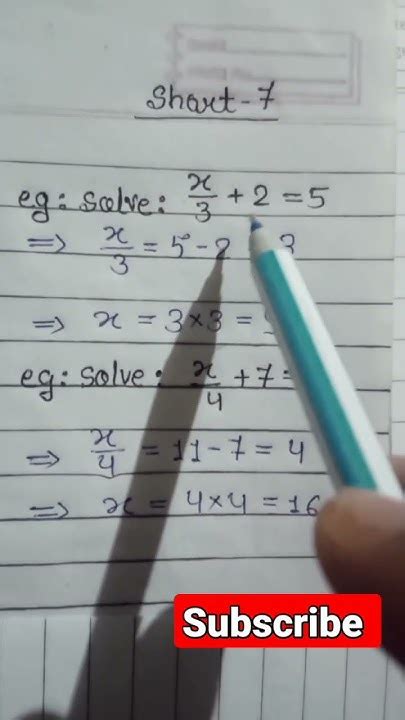 Short-7
eg: Solve: x/3 + 2 = 5
⇒ x/3 = 5 - 2 3
⇒ x = 3×3 =
eg: Solve: x/4 + 7 =
⇒ x/4 = 11 - 7 = 4
⇒ x = 4×4 = 16
Subscribe